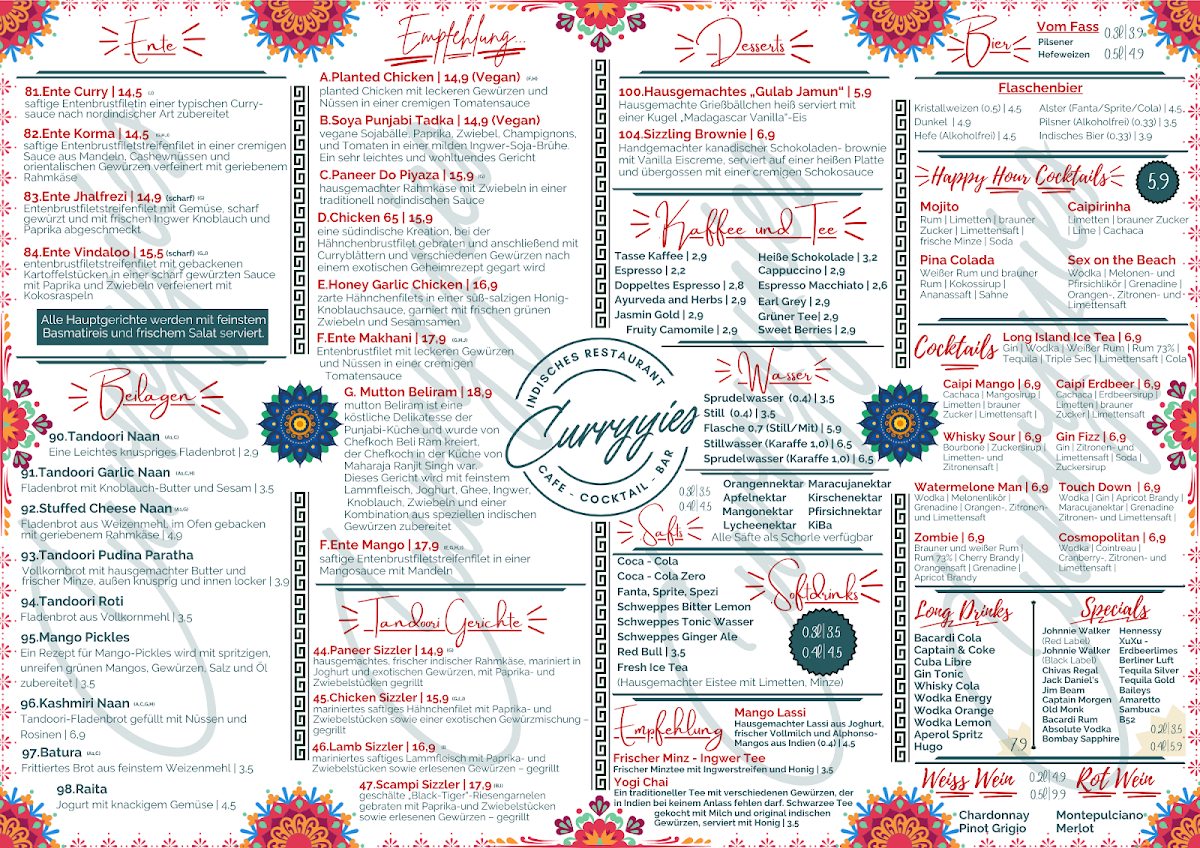 Ente
81.Ente Curry | 14,5
saftige Entenbrustfiletin einer typischen Curry-
sauce nach nordindischer Art zubereitet
82.Ente Korma | 14,5
saftige Entenbrustfiletstreifenfilet in einer cremigen
Sauce aus Mandeln, Cashewnüssen und
orientalischen Gewürzen verfeinert mit geriebenem
Rahmkäse
83.Ente Jhalfrezi | 14,9 (scharf) (G)
Entenbrustfiletstreifenfilet mit Gemüse, scharf
gewürzt und mit frischen Ingwer Knoblauch und
Paprika abgeschmeckt
84.Ente Vindaloo | 15,5 (scharf)
entenbrustfiletstreifenfilet mit gebackenen
Kartoffelstücken in einer scharf gewürzten Sauce
mit Paprika und Zwiebeln verfeienert mit
Kokosraspeln
Alle Hauptgerichte werden mit feinstem
Basmatireis und frischem Salat serviert.
Beilagen
90.Tandoori Naan (A1,C)
Eine Leichtes knuspriges Fladenbrot | 2,9
91.Tandoori Garlic Naan (A1,C,H)
Fladenbrot mit Knoblauch-Butter und Sesam | 3,5
92.Stuffed Cheese Naan (A1,G)
Fladenbrot aus Weizenmehl, im Ofen gebacken
mit geriebenem Rahmkäse | 4,9
93.Tandoori Pudina Paratha
Vollkornbrot mit hausgemachter Butter und
frischer Minze, außen knusprig und innen locker | 3,9
94.Tandoori Roti
Fladenbrot aus Vollkornmehl | 3,5
95.Mango Pickles
Ein Rezept für Mango-Pickles wird mit spritzigen,
unreifen grünen Mangos, Gewürzen, Salz und Öl
zubereitet | 3,5
96.Kashmiri Naan (A,C,G,H)
Tandoori-Fladenbrot gefüllt mit Nüssen und
Rosinen | 6,9
97.Batura (A1,C)
Frittiertes Brot aus feinstem Weizenmehl | 3,5
98.Raita
Jogurt mit knackigem Gemüse | 4,5
Empfehlung...
A.Planted Chicken | 14,9 (Vegan) (F,H)
planted Chicken mit leckeren Gewürzen und
Nüssen in einer cremigen Tomatensauce
B.Soya Punjabi Tadka | 14,9 (Vegan)
vegane Sojabälle, Paprika, Zwiebel, Champignons,
und Tomaten in einer milden Ingwer-Soja-Brühe.
Ein sehr leichtes und wohltuendes Gericht
C.Paneer Do Piyaza | 15,9 (G)
hausgemachter Rahmkäse mit Zwiebeln in einer
traditionell nordindischen Sauce
D.Chicken 65 | 15,9
eine südindische Kreation, bei der
Hähnchenbrustfilet gebraten und anschließend mit
Curryblättern und verschiedenen Gewürzen nach
einem exotischen Geheimrezept gegart wird
E.Honey Garlic Chicken | 16,9
zarte Hähnchenfilets in einer süß-salzigen Honig-
Knoblauchsauce, garniert mit frischen grünen
Zwiebeln und Sesamsamen
F.Ente Makhani | 17,9 (G,H,2)
Entenbrustfilet mit leckeren Gewürzen
und Nüssen in einer cremigen
Tomatensauce
G. Mutton Beliram | 18,9
mutton Beliram ist eine
köstliche Delikatesse der
Punjabi-Küche und wurde von
Chefkoch Beli Ram kreiert,
der Chefkoch in der Küche von
Maharaja Ranjit Singh war.
Dieses Gericht wird mit feinstem
Lammfleisch, Joghurt, Ghee, Ingwer,
Knoblauch, Zwiebeln und einer
Kombination aus speziellen indischen
Gewürzen zubereitet
F.Ente Mango | 17,9
saftige Entenbrustfiletstreifenfilet in einer
Mangosauce mit Mandeln
Tandoori Gerichte
44.Paner Sizzler | 14,9 (G)
hausgemachtes, frischer indischer Rahmkäse, mariniert in
Joghurt und exotischen Gewürzen, mit Paprika- und
Zwiebelstücken gegrillt
45.Chicken Sizzler | 15,9
mariniertes saftiges Hähnchenfilet mit Paprika- und
Zwiebelstücken sowie einer exotischen Gewürzmischung –
gegrillt
46.Lamb Sizzler | 16,9
mariniertes saftiges Lammfleisch mit Paprika- und
Zwiebelstücken sowie erlesenen Gewürzen – gegrillt
47.Scampi Sizzler | 17,9
geschälte „Black-Tiger"-Riesengarnelen
gebraten mit Paprika-und Zwiebelstücken
sowie erlesenen Gewürzen – gegrillt
INDISCHES RESTAURANT
Curryyies
CAFE - COCKTAIL - BAR
Desserts
100.Hausgemachtes „Gulab Jamun" | 5,9
Hausgemachte Grießbällchen heiß serviert mit
einer Kugel „Madagascar Vanilla"-Eis
104.Sizzling Brownie | 6,9
Handgemachter kanadischer Schokoladen- brownie
mit Vanilla Eiscreme, serviert auf einer heißen Platte
und übergossen mit einer cremigen Schokosauce
Kaffee und Tee
Tasse Kaffee | 2,9
Espresso | 2,2
Doppeltes Espresso | 2,8
Ayurveda and Herbs | 2,9
Jasmin Gold | 2,9
Fruity Camomile | 2,9
Heiße Schokolade | 3,2
Cappuccino | 2,9
Espresso Macchiato | 2,6
Earl Grey | 2,9
Grüner Tee| 2,9
Sweet Berries | 2,9
Wasser
Sprudelwasser (0.4) | 3,5
Still (0.4) | 3,5
Flasche 0,7 (Still/Mit) | 5,9
Stillwasser (Karaffe 1,0) | 6,5
Sprudelwasser (Karaffe 1,0) | 6,5
0.3l | 3.5
0.4l | 4.5
Safts
Orangennektar Maracujanektar
Apfelnektar Kirschenektar
Mangonektar Pfirsichnektar
Lycheenektar KiBa
Alle Säfte als Schorle verfügbar
Softdrinks
Coca - Cola
Coca - Cola Zero
Fanta, Sprite, Spezi
Schweppes Bitter Lemon
Schweppes Tonic Wasser
Schweppes Ginger Ale
Red Bull | 3,5
Fresh Ice Tea
(Hausgemachter Eistee mit Limetten, Minze)
0.3l | 3.5
0.4l | 4.5
Empfehlung
Mango Lassi
Hausgemachter Lassi aus Joghurt,
frischer Vollmilch und Alphonso-
Mangos aus Indien (0.4) | 4,5
Frischer Minz - Ingwer Tee
Frischer Minztee mit Ingwerstreifen und Honig | 3,5
Yogi Chai
Ein traditioneller Tee mit verschiedenen Gewürzen, der
in Indien bei keinem Anlass fehlen darf. Schwarzee Tee
gekocht mit Milch und original indischen
Gewürzen, serviert mit Honig | 3,5
Bier
Vom Fass
Pilsener
Hefeweizen
0.3l | 3.9
0.5l | 4.9
Flaschenbier
Kristallweizen (0,5) | 4,5
Dunkel | 4,9
Hefe (Alkoholfrei) | 4,5
Alster (Fanta/Sprite/Cola) | 4,5
Pilsner (Alkoholfrei) (0.33) | 3,5
Indisches Bier (0,33) | 3,9
Happy Hour Cocktails
5,9
Mojito
Rum | Limetten | brauner
Zucker | Limettensaft |
frische Minze | Soda
Caipirinha
Limetten | brauner Zucker
| Lime | Cachaca
Pina Colada
Weißer Rum und brauner
Rum | Kokossirup |
Ananassaft | Sahne
Sex on the Beach
Wodka | Melonen- und
Pfirsichlikör | Grenadine |
Orangen-, Zitronen- und
Limettensaft
Cocktails
Long Island Ice Tea | 6,9
Gin | Wodka | Weißer Rum | Rum 73% |
Tequila | Triple Sec | Limettensaft | Cola
Caipi Mango | 6,9
Cachaca | Mangosirup |
Limetten | brauner
Zucker | Limettensaft |
Caipi Erdbeer | 6,9
Cachaca | Erdbeersirup |
Limetten | brauner
Zucker | Limettensaft
Whisky Sour | 6,9
Bourbone | Zuckersirup |
Limetten- und
Zitronensaft |
Gin Fizz | 6,9
Gin | Zitronen- und
Limettensaft | Soda |
Zuckersirup
Watermelone Man | 6,9
Wodka | Melonenlikör |
Grenadine | Orangen-, Zitronen-
und Limettensaft
Touch Down | 6,9
Wodka | Gin | Apricot Brandy |
Maracujanektar | Grenadine
Zitronen- und Limettensaft |
Zombie | 6,9
Brauner und weißer Rum |
Rum 73% | Cherry Brandy |
Orangensaft | Grenadine |
Apricot Brandy
Cosmopolitan | 6,9
Wodka | Cointreau |
Cranberry-, Zitronen- und
Limettensaft |
Long Drinks
Bacardi Cola
Captain & Coke
Cuba Libre
Gin Tonic
Whisky Cola
Wodka Energy
Wodka Orange
Wodka Lemon
Aperol Spritz
Hugo
7.9
Specials
Johnnie Walker
(Red Label)
Johnnie Walker
(Black Label)
Chivas Regal
Jack Daniel's
Jim Beam
Captain Morgen
Old Monk
Bacardi Rum
Absolute Vodka
Bombay Sapphire
Hennessy
XuXu -
Erdbeerlimes
Berliner Luft
Tequila Silver
Tequila Gold
Baileys
Amaretto
Sambuca
B52
0.2l | 3.5
0.4l | 5.9
Weiss Wein
0.2l | 4.9
0.5l | 9.9
Rot Wein
Chardonnay
Pinot Grigio
Montepulciano
Merlot